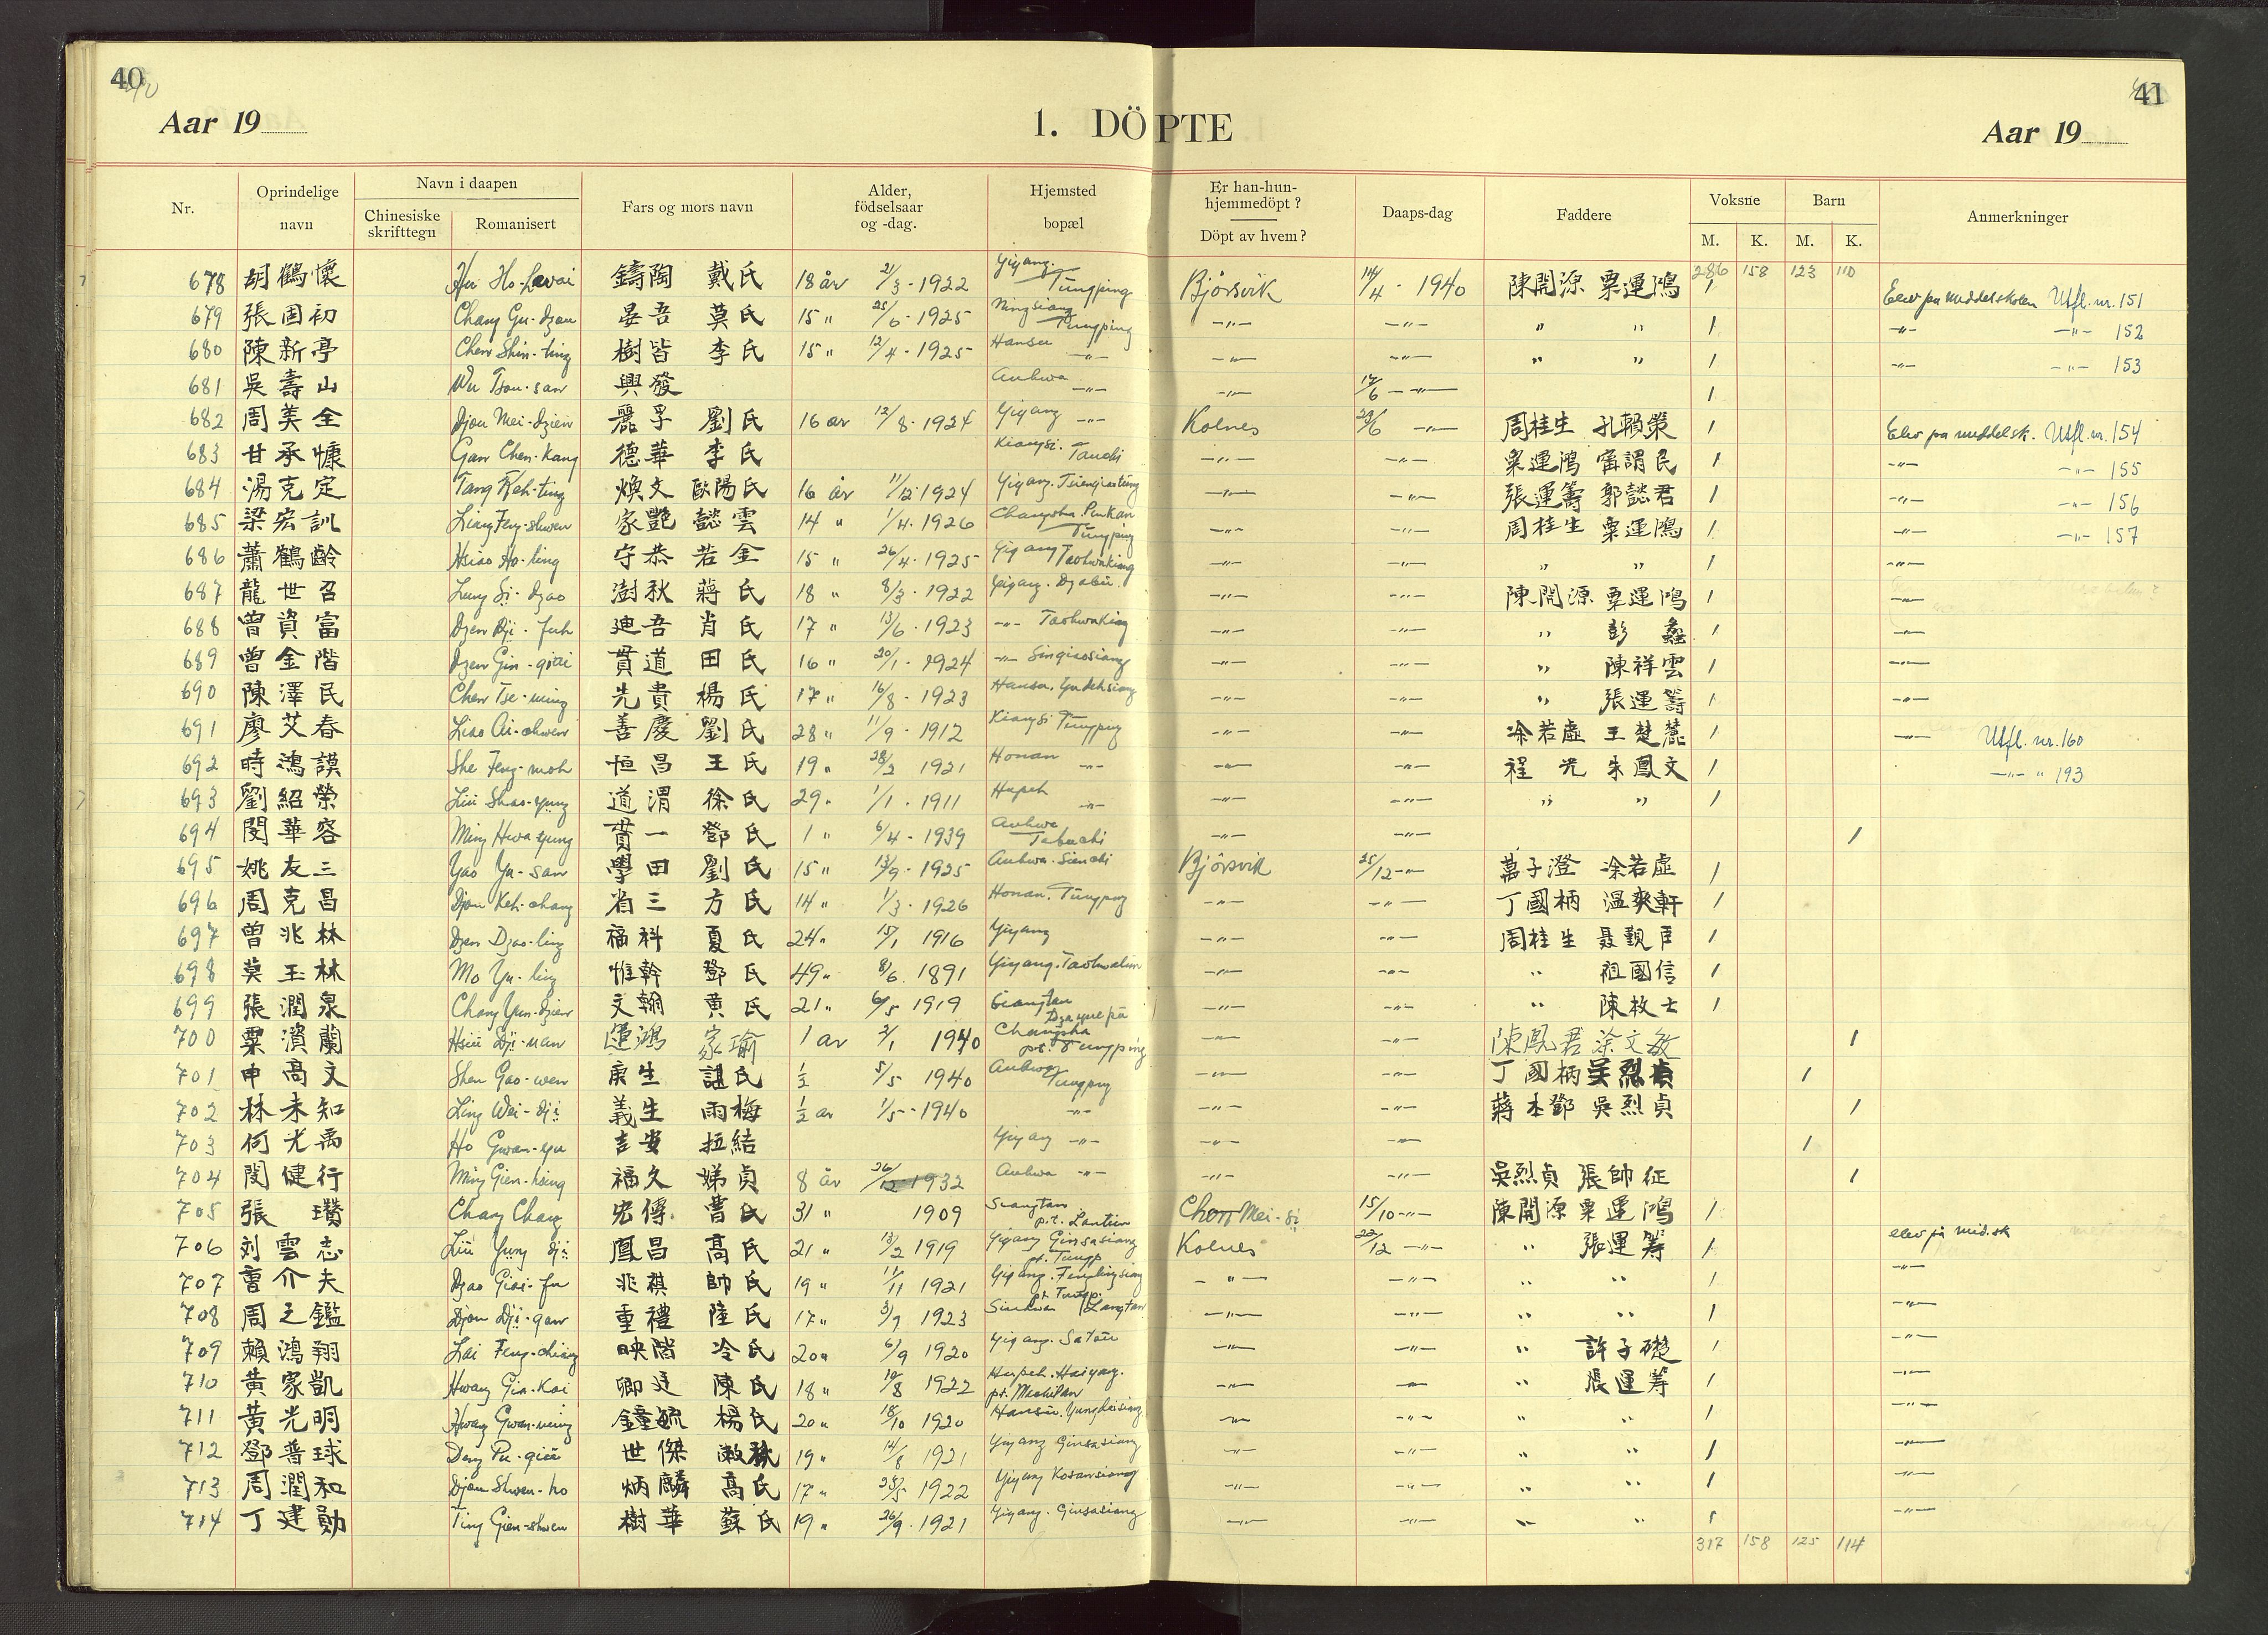 40
41
Aar 19
1. DÖPTE
Aar 19
Nr. Oprindelige navn Navn i daapen Chinesiske skrifttegn Romanisert Fars og mors navn Alder, födselsaar og -dag. Hjemsted bopæl Er han-hun-hjemmedöpt? Döpt av hvem? Daaps-dag Faddere Voksne M. K. Barn M. K. Anmerkninger
286 158 123 110
678 胡鶴懷 Hu Ho-hwai 鑄陶 戴氏 18 år 21/3 · 1922 Yiyang. Tungping Björsvik 14/4 · 1940 陳開源 粟運鴻 / Elev på middelskolen Utfl. nr. 151
679 張國初 Chang Gu-dzou 晏吾 莫氏 15 " 25/6 · 1925 Ningsiang Tungping -"- -"- " " / -"- -"- 152
680 陳新亭 Chen Shin-ting 樹皆 李氏 15 " 12/4 · 1925 Hansu -"- -"- -"- " " / -"- -"- 153
681 吳壽山 Wu Tsou-san 興發 Anhwa -"- -"- 17/6 -"- /
682 周美全 Djou Mei-dzien 麗孚 劉氏 16 år 12/8 · 1924 Yiyang -"- Kolnes 29/6 -"- 周桂生 孔賴策 / Elev på middelsk. Utfl. nr. 154
683 甘承慷 Gan Chen-kang 德華 李氏 Kiangsi. Tauchi -"- -"- 粟運鴻 甯謂民 / -"- -"- 155
684 湯克定 Tang Keh-ting 煥文 歐陽氏 16 år 11/12 · 1924 Yiyang. -"- -"- 張運籌 郭懿君 / -"- -"- 156
685 梁宏訓 Liang Feng-shwen 家艷 懿雲 14 " 1/4 · 1926 Changsha. Tungping -"- -"- 周桂生 粟運鴻 / -"- -"- 157
686 蕭鶴齡 Hsiao Ho-ling 守恭 若金 15 " 26/4 · 1925 Yiyang Taohwakiang -"- -"- " " / -"-
687 龍世召 Lung Si-dzao 澍秋 蔣氏 18 " 8/3 · 1922 Yiyang. -"- -"- 陳開源 粟運鴻 / -"-
688 曾資富 Dzen Dji-fuh 廸吾 肖氏 17 " 13/6 · 1923 -"- Taohwakiang -"- -"- " 彭蠡 / -"-
689 曾金階 Dzen Gin-giai 貫道 田氏 16 " 20/1 · 1924 -"- Sinqiaosiang -"- -"- " 陳祥雲 / -"-
690 陳澤民 Chen Tse-ming 先貴 楊氏 17 " 16/8 · 1923 Hansu. -"- -"- " 張運籌 / -"-
691 廖艾春 Liao Ai-chwen 善慶 劉氏 28 " 11/9 · 1912 Kiangsi Tungping -"- -"- 凃若虛 王楚麓 / -"- Utfl. nr. 160
692 時鴻謨 She Feng-moh 恒昌 王氏 19 " 28/2 1921 Honan -"- -"- -"- 程光 朱鳳文 / -"- " 193
693 劉紹榮 Liu Shao-yung 道渭 徐氏 29 " 1/1 · 1911 Hupeh -"- -"- -"- " " /
694 閔華容 Ming Hwa-yung 貫一 鄧氏 1 " 6/4 · 1939 Anhwa -"- -"- /
695 姚友三 Yao Yu-san 學田 劉氏 15 " 13/9 · 1925 Anhwa. Björsvik 25/12 -"- 萬子澄 凃若虛 /
696 周克昌 Djou Keh-chang 省三 方氏 14 " 1/3 · 1926 Honan. Tungping -"- -"- 丁國柄 溫爽軒 /
697 曾兆林 Dzen Dzao-ling 福科 夏氏 24 " 15/1 1916 Yiyang -"- -"- 周桂生 聶覲臣 /
698 莫玉林 Mo Yu-ling 惟幹 鄧氏 49 " 8/6 1891 Yiyang. -"- -"- " 祖國信 /
699 張潤泉 Chang Yun-dzien 文翰 黃氏 21 " 6/5 1919 Siangtan -"- -"- " 陳枚士 /
700 粟資蘭 運鴻 家瑜 1 år 3/1 1940 Changsha pt. Tungping -"- -"- 陳鳳君 涂文敏 /
701 申高文 Shen Gao-wen 庚生 諶氏 ½ 5/5 1940 Anhwa Tungping -"- -"- 丁國柄 吳烈貞 /
702 林未知 Ling Wei-dji 義生 雨梅 ½ år 1/5 · 1940 -"- -"- -"- 蔣本鄧 吳烈貞 /
703 何光禹 Ho Gwan-yu 吉安 Yiyang -"- -"- -"- /
704 閔健行 Ming Gien-hsing 福久 娣貞 8 år 26/12 1932 Anhwa -"- -"- -"- 吳烈貞 張帥征 /
705 張瓚 Chang Chang 宏傳 曹氏 31 " 1909 Siangtan p.t. Lantien Chou Mei-si 15/10 -"- 陳開源 粟運鴻 /
706 刘雲志 Liu Yung-dji 鳳昌 高氏 21 " 13/2 1919 Yiyang Ginsasiang pt. Tungp. Kolnes 22/12 -"- " 張運籌 / elev på mid.sk
707 曹介夫 Dzao Giai-fu 兆祺 帥氏 19 " 11/11 1921 Yiyang. pt. Tungp. -"- -"- " " / -"-
708 周之鑑 Djou Dji-gan 重禮 陸氏 17 " 3/9 1923 Sinhwa Langtan -"- -"- " " / -"-
709 賴鴻翔 Lai Feng-chiang 映階 冷氏 20 " 6/9 1920 Yiyang. Satou -"- -"- " 許子礎 / -"-
710 黃家凱 Hwang Gia-kai 卿廷 陳氏 18 " 19/8 1922 Hupeh. pt. -"- -"- " 張運籌 / -"-
711 黃光明 Hwang Gwan-ming 鐘毓 楊氏 20 " 18/10 1920 Hansu. -"- -"- " " / -"-
712 鄧普球 Deng Pu-giu 世傑 19 " 14/8 1921 Yiyang Ginsasiang -"- -"- " " / -"-
713 周潤和 Djou Shwen-ho 炳麟 高氏 17 " 25/5 1922 Yiyang Kosansiang -"- -"- " " / -"-
714 丁建勛 Ting Gien-shwen 樹華 蘇氏 19 " 26/9 · 1921 Yiyang. Ginsasiang -"- -"- " " / -"-
317 158 125 114